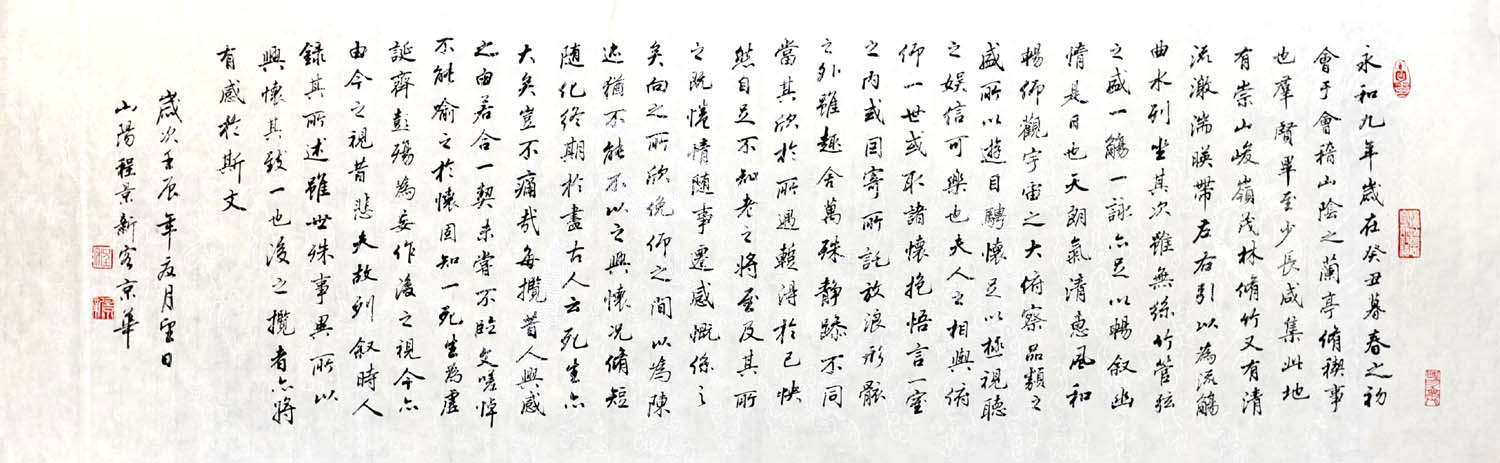 永和九年歲在癸丑暮春之初
會于會稽山陰之蘭亭脩禊事
也羣賢畢至少長咸集此地
有崇山峻嶺茂林脩竹又有清
流激湍暎帶左右引以為流觴
曲水列坐其次雖無絲竹管弦
之盛一觴一詠亦足以暢叙幽
情是日也天朗氣清惠風和
暢仰觀宇宙之大俯察品類之
盛所以遊目騁懷足以極視聽
之娛信可樂也夫人之相與俯
仰一世或取諸懷抱悟言一室
之內或因寄所託放浪形骸
之外雖趣舍萬殊静躁不同
當其欣於所遇暫得於己快
然自足不知老之將至及其所
之既惓情随事遷感慨係之
矣向之所欣俛仰之間以為陳
迹猶不能不以之興懷況脩短
随化終期於盡古人云死生亦
大矣豈不痛哉每攬昔人興感
之由若合一契未嘗不臨文嗟悼
不能喻之於懷固知一死生為虛
誕齊彭殤為妄作後之視今亦
由今之視昔悲夫故列叙時人
錄其所述雖世殊事異所以
興懷其致一也後之攬者亦將
有感於斯文
歲次壬辰年月日
山陽程景新客京華